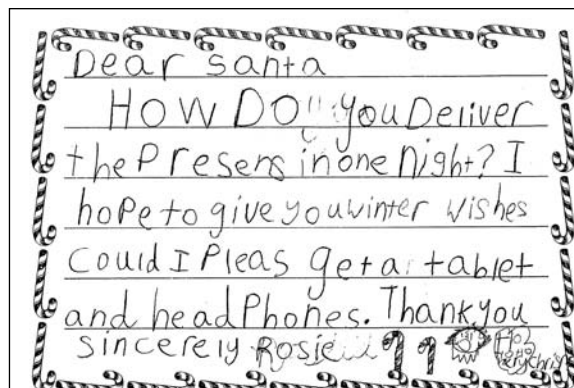 Dear Santa
HOW DO you Deliver
the Presens in one Night? I
hope to give you winter wishes
Could I Pleas get a tablet
and head Phones. Thank you
sincerely Rosie
Ho
HoHo